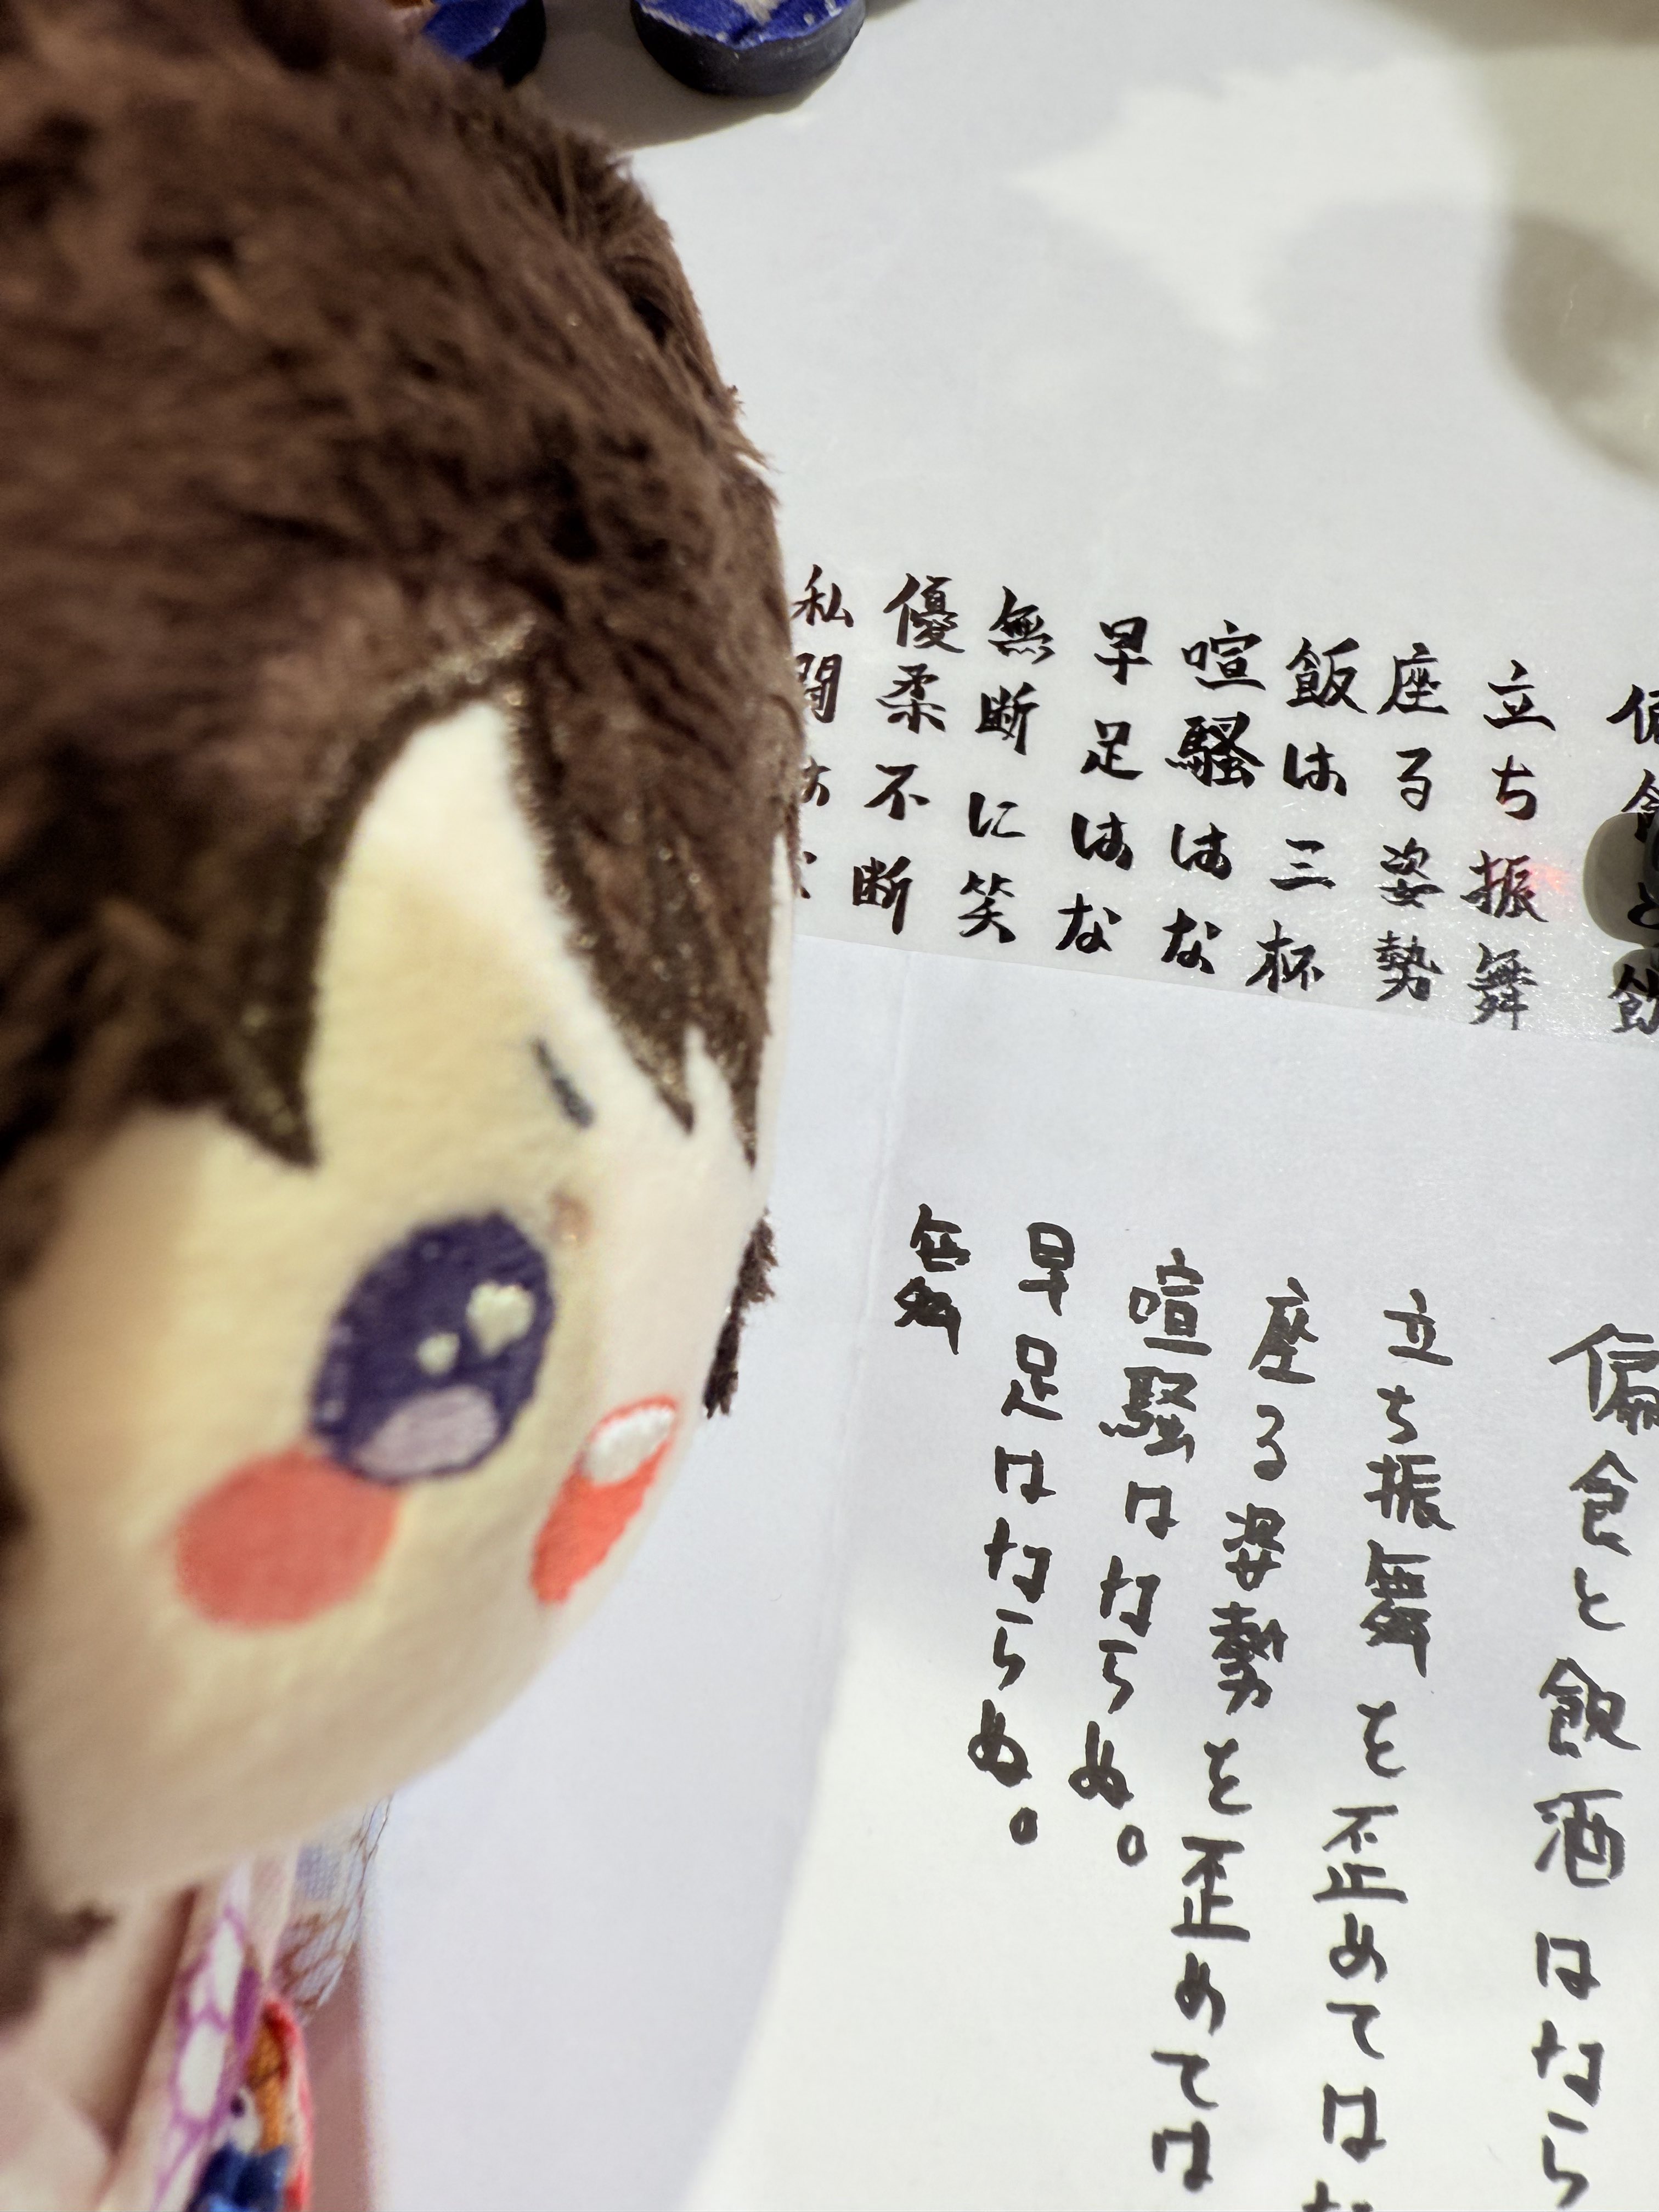 偏食と飲
立ち振舞
座る姿勢
飯は三杯
喧騒はな
早足はな
無断に笑
優柔不断
私
偏食と飲酒はなら
立ち振舞を歪めてはな
座る姿勢を歪めては
喧騒はならぬ。
早足はならぬ。
無